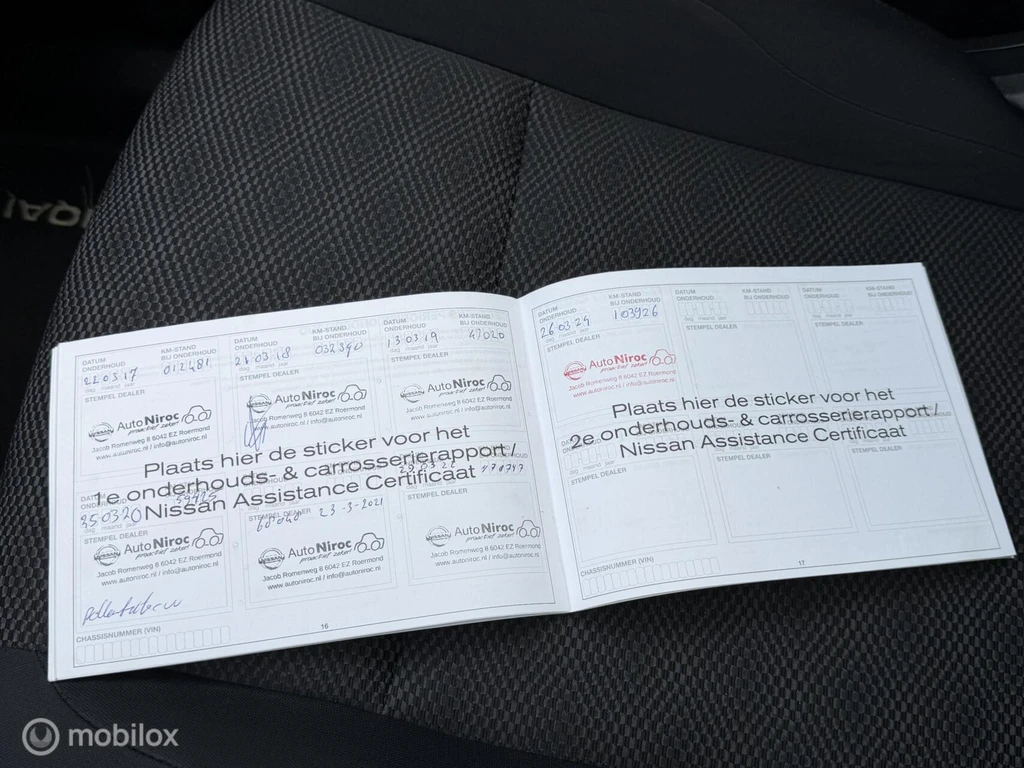 DATUM ONDERHOUD KM-STAND BIJ ONDERHOUD
22 03 17 012481
dag maand jaar
STEMPEL DEALER
NISSAN Auto Niroc
proactief zeker!
Jacob Romenweg 8 6042 EZ Roermond
www.autoniroc.nl / info@autoniroc.nl
KM-STAND BIJ ONDERHOUD
21 03 18 032390
STEMPEL DEALER
Auto Niroc
proactief zeker!
Jacob Romenweg 8 6042 EZ Roermond
www.autoniroc.nl / info@autoniroc.nl
DATUM ONDERHOUD KM-STAND BIJ ONDERHOUD
13 03 19 47020
dag maand jaar
STEMPEL DEALER
NISSAN Auto Niroc
proactief zeker!
Jacob Romenweg 8 6042 EZ Roermond
www.autoniroc.nl / info@autoniroc.nl
Plaats hier de sticker voor het
1e onderhouds- & carrosserierapport /
Nissan Assistance Certificaat
DATUM ONDERHOUD
250320 59725
dag maand jaar
STEMPEL DEALER
NISSAN Auto Niroc
proactief zeker!
Jacob Romenweg 8 6042 EZ Roermond
www.autoniroc.nl / info@autoniroc.nl
STEMPEL DEALER
23-3-2021
NISSAN Auto Niroc
proactief zeker!
Jacob Romenweg 8 6042 EZ Roermond
www.autoniroc.nl / info@autoniroc.nl
STEMPEL DEALER
NISSAN Auto Niroc
proactief zeker!
Jacob Romenweg 8 6042 EZ Roermond
www.autoniroc.nl / info@autoniroc.nl
CHASSISNUMMER (VIN)
16
DATUM ONDERHOUD KM-STAND BIJ ONDERHOUD
26 03 24 103926
dag maand jaar
STEMPEL DEALER
NISSAN Auto Niroc
proactief zeker!
Jacob Romenweg 8 6042 EZ Roermond
www.autoniroc.nl / info@autoniroc.nl
DATUM ONDERHOUD KM-STAND BIJ ONDERHOUD
dag maand jaar
STEMPEL DEALER
DATUM ONDERHOUD KM-STAND BIJ ONDERHOUD
dag maand jaar
STEMPEL DEALER
Plaats hier de sticker voor het
2e onderhouds- & carrosserierapport /
Nissan Assistance Certificaat
dag maand jaar
STEMPEL DEALER
STEMPEL DEALER
STEMPEL DEALER
CHASSISNUMMER (VIN)
17
mobilox